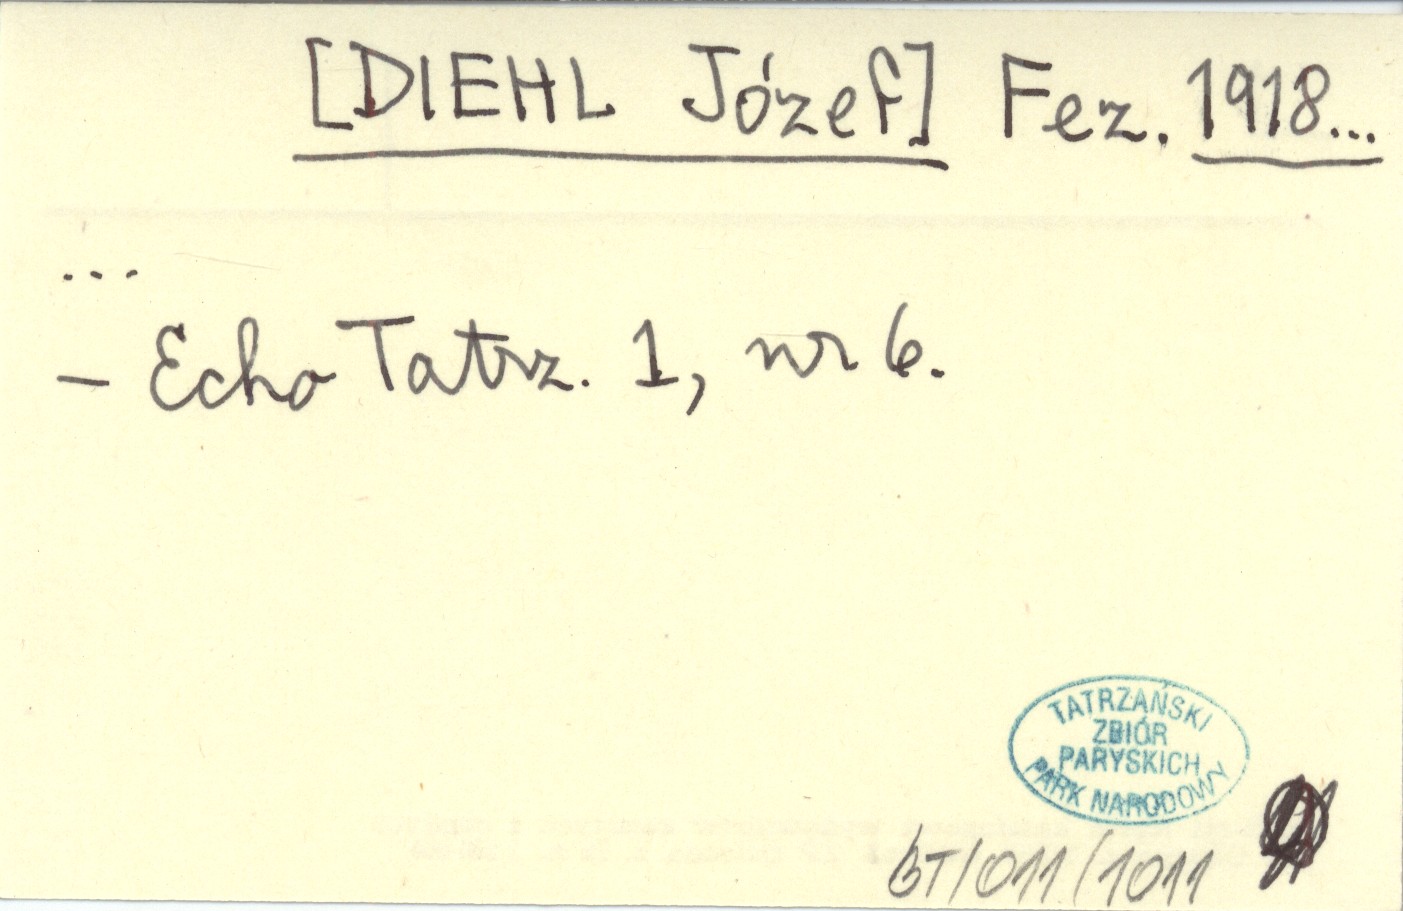 [DIEHL Józef] Fez. 1918...
...
– Echo Tatrz. 1, nr 6.
TATRZAŃSKI
ZBIÓR
PARYSKICH
PARK NARODOWY
BT/011/1011